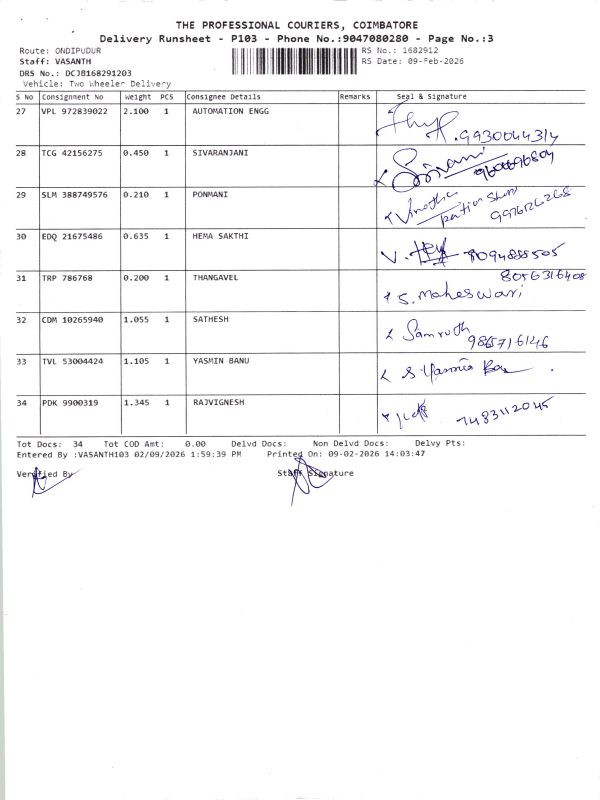 THE PROFESSIONAL COURIERS, COIMBATORE
Delivery Runsheet - P103 - Phone No.:9047080280 - Page No.:3
Route: ONDIPUDUR RS No.: 1682912
Staff: VASANTH RS Date: 09-Feb-2026
DRS No.: DCJB168291203
Vehicle: Two Wheeler Delivery
S No Consignment No Weight PCS Consignee Details Remarks Seal & Signature
27 VPL 972839022 2.100 1 AUTOMATION ENGG
28 TCG 42156275 0.450 1 SIVARANJANI
29 SLM 388749576 0.210 1 PONMANI Vinotha
9976126268
30 EDQ 21675486 0.635 1 HEMA SAKTHI
8056316408
31 TRP 786768 0.200 1 THANGAVEL S. Maheswari
32 CDM 10265940 1.055 1 SATHESH Samruth
9865716146
33 TVL 53004424 1.105 1 YASMIN BANU
34 PDK 9900319 1.345 1 RAJVIGNESH 7483112045
Tot Docs: 34 Tot COD Amt: 0.00 Delvd Docs: Non Delvd Docs: Delvy Pts:
Entered By :VASANTH103 02/09/2026 1:59:39 PM Printed On: 09-02-2026 14:03:47
Verified By Staff Signature